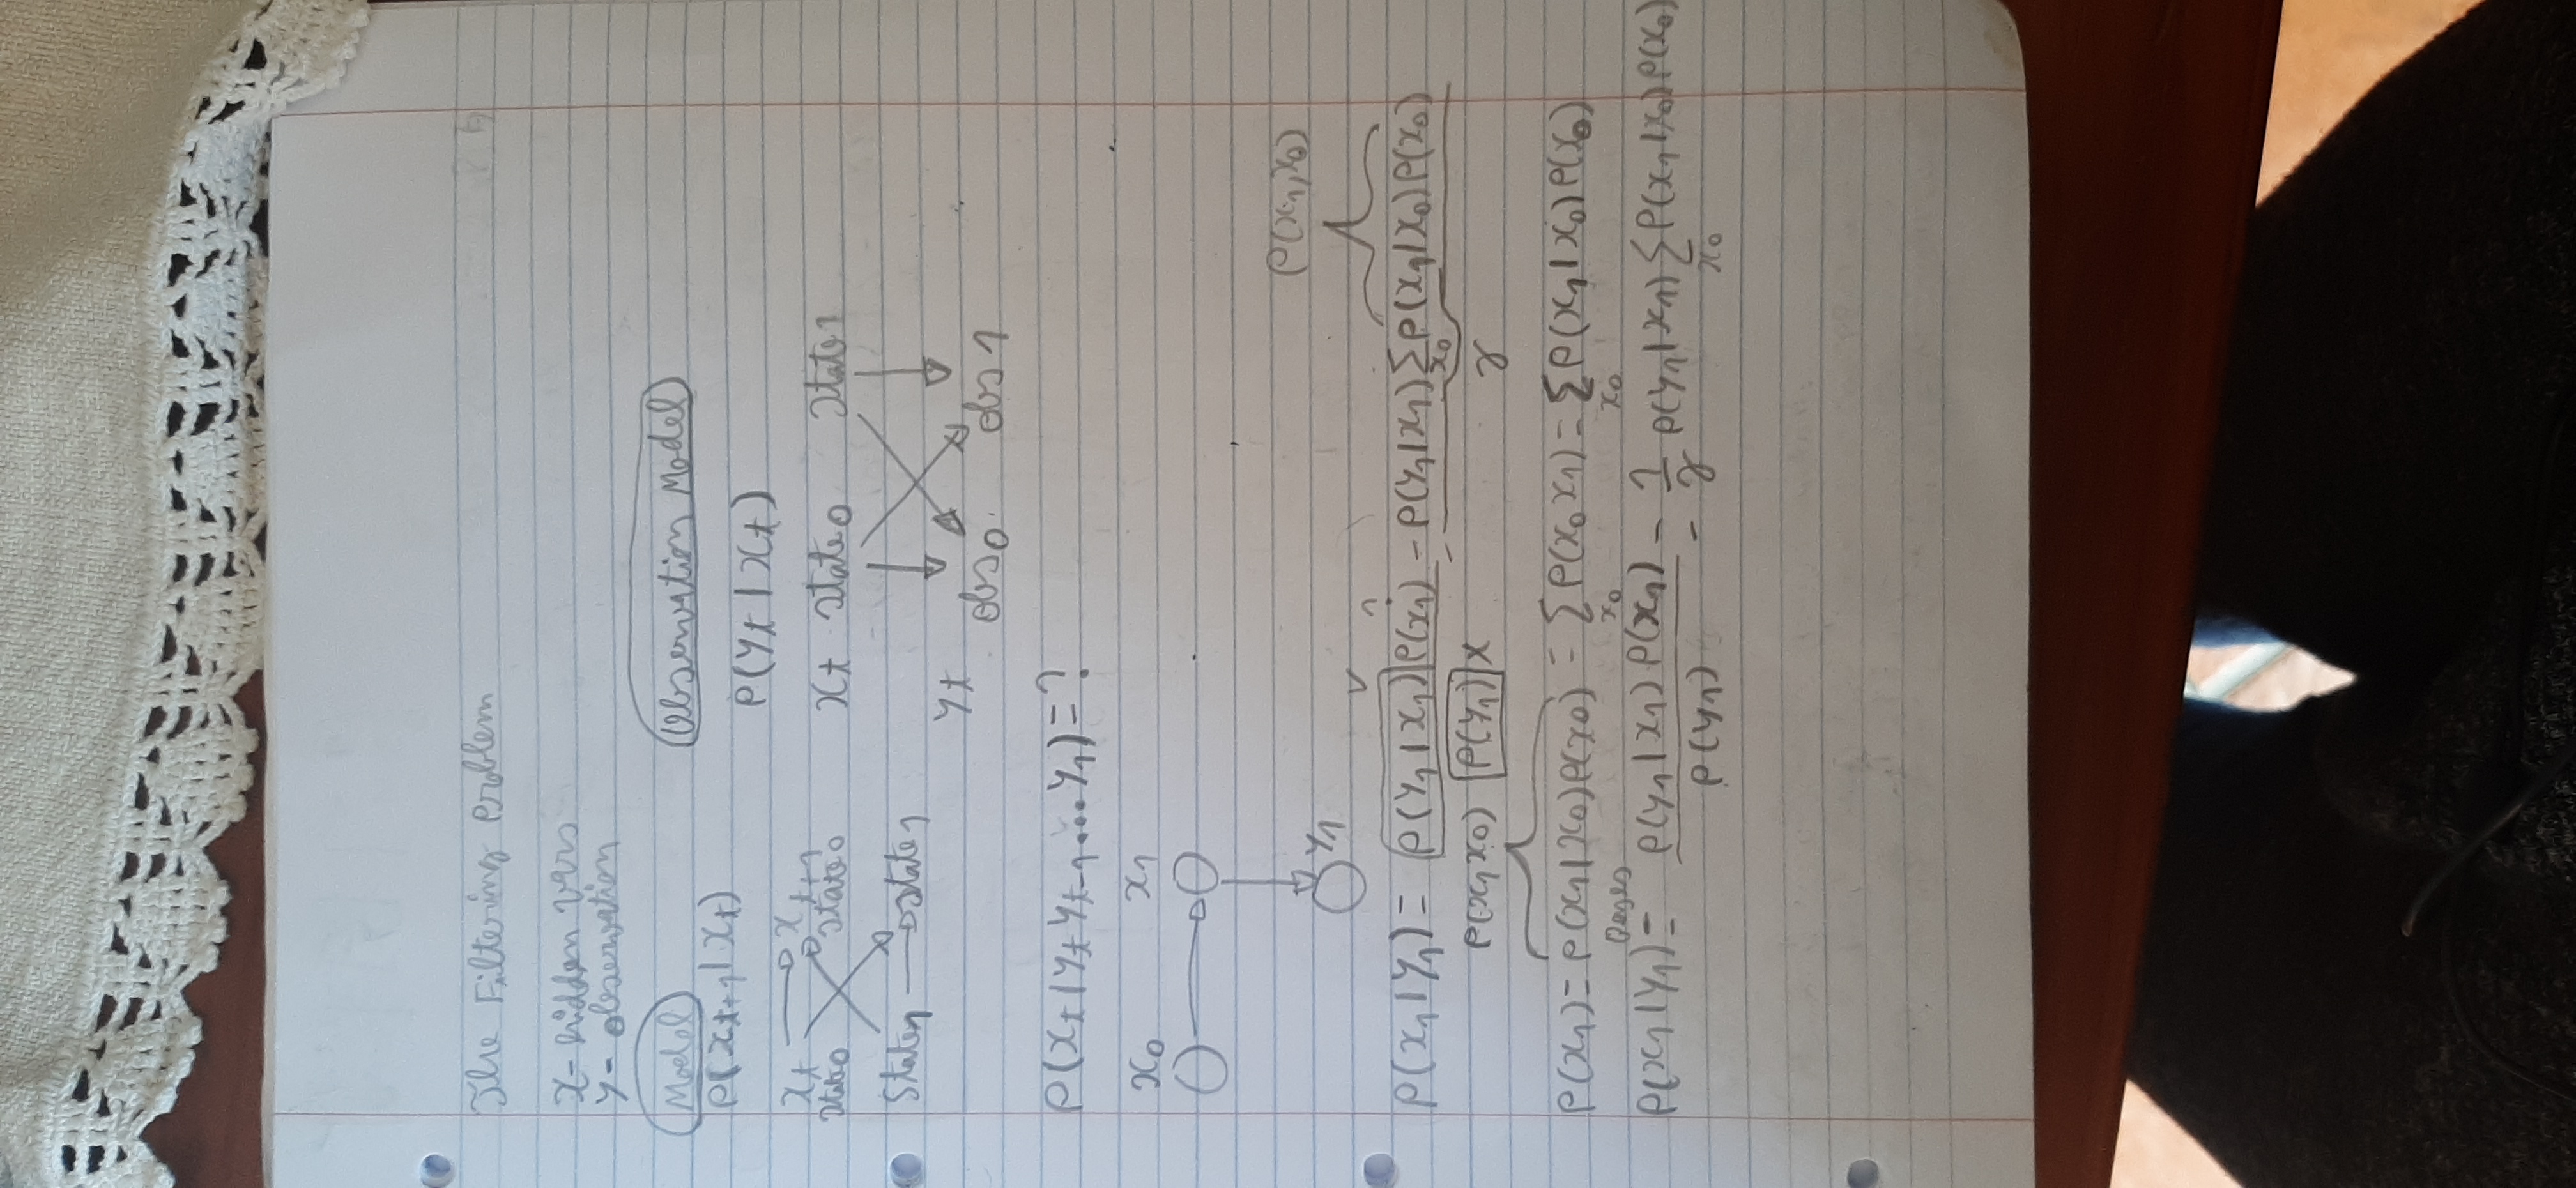 The Filtering Problem
x - hidden vars
y - observation
Model
P(x_{t+1} | x_t)
x_t → x_{t+1}
state0 state0
State1 → state1
Observation Model
P(y_t | x_t)
x_t state0 state1
y_t
obs0 obs1
P(x_t | y_t y_{t-1} ... y_1) = ?
x_0 x_1
y_1
P(x_1, x_0)
v ?
P(x_1 | y_1) = P(y_1 | x_1) P(x_1) = P(y_1 | x_1) Σ_{x_0} P(x_1 | x_0) P(x_0)
P(x_1 x_0) P(y_1) x γ
P(x_1) = P(x_1 | x_0) P(x_0) = Σ_{x_0} P(x_0 x_1) = Σ_{x_0} P(x_1 | x_0) P(x_0)
Bayes
P(x_1 | y_1) = P(y_1 | x_1) P(x_1) = 1/γ P(y_1 | x_1) Σ_{x_0} P(x_1 | x_0) P(x_0)
P(y_1)